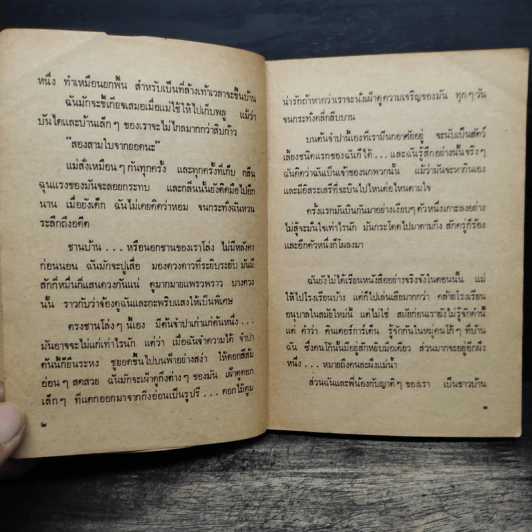 หนึ่ง ทำเหมือนยกพื้น สำหรับเป็นที่ล้างเท้าเวลาจะขึ้นบ้าน
ฉันมักจะขี้เกียจเสมอเมื่อแม่ใช้ให้ไปเก็บพลู แม้ว่า
บันไดและบ้านเล็กๆ ของเราจะไม่ไกลมากกว่าสิบก้าว
“สองสามใบจากยอดนะ”
แม่สั่งเหมือนๆ กันทุกครั้ง และทุกครั้งที่เก็บ กลิ่น
ฉุนแรงของมันจะลอยกระทบ และกลิ่นนั้นยังติดมือไปอีก
นาน เมื่อยังเด็ก ฉันไม่เคยคิดว่าหอม จนกระทั่งฉันหวน
ระลึกถึงอดีต
ชานบ้าน ... หรือนอกชานของเราโล่ง ไม่มีหลังคา
ก่อนนอน ฉันมักจะปูเสื่อ มองดวงดาวที่ระยิบระยับ มันมี
สักกี่หมื่นกี่แสนดวงกันแน่ ดูมากมายแพรวพราว บางดวง
นั้น ราวกับว่าจ้องดูฉันและกะพริบแสงให้เป็นพิเศษ
ตรงชานโล่งๆ นี้เอง มีต้นจำปาเก่าแก่ต้นหนึ่ง ...
มันอาจจะไม่แก่เท่าไรนัก แต่ว่า เมื่อฉันจำความได้ จำปา
ต้นนี้ก็ยืนระหง ชูยอดขึ้นไปบนฟ้าอย่างสง่า ให้ดอกสีส้ม
อ่อนๆ สดสวย ฉันมักจะเฝ้าดูกิ่งต่างๆ ของมัน เฝ้าดูดอก
เล็กๆ ที่แตกออกมาจากกิ่งอ่อนเป็นรูปรี ... ดอกไม้ตูม
๒
น่ารักถ้าหากว่าเราจะนั่งเฝ้าดูความเจริญของมัน ทุกๆ วัน
จนกระทั่งคลี่กลีบบาน
บนต้นจำปานี้เองที่เรามีนกอาศัยอยู่ จะนับเป็นสัตว์
เลี้ยงชนิดแรกของฉันก็ได้ ... และฉันรู้สึกอย่างนั้นจริงๆ
ฉันคิดว่าฉันเป็นเจ้าของนกพวกนั้น แม้ว่ามันจะหากินเอง
และมีอิสระเสรีที่จะบินไปไหนต่อไหนตามใจ
ครั้งแรกมันบินกันมาอย่างเงียบๆ ตัวหนึ่งเกาะลงอย่าง
ไม่สู้จะมั่นใจเท่าไรนัก มันกระโดดไปมาตามกิ่ง สักครู่ก็ร้อง
และอีกตัวหนึ่งก็โผลงมา
ฉันยังไม่ได้เรียนหนังสืออย่างจริงจังในตอนนั้น แม่
ให้ไปโรงเรียนบ้าง แต่ก็ไปเล่นเสียมากกว่า คล้ายโรงเรียน
อนุบาลในสมัยใหม่นี้ แต่ไม่ใช่ สมัยก่อนเรายังไม่รู้จักคำนี้
แต่ คำว่า คินเตอร์การ์เด้น รู้จักกันในหมู่คนโก้ๆ ที่บ้าน
ฉัน ซึ่งคนโก้นั้นมีอยู่สักหยิบมือเดียว ส่วนมากจะอยู่อีกฝั่ง
หนึ่ง ... หมายถึงคนละฝั่งแม่น้ำ
ส่วนฉันและพี่น้องกับญาติๆ ของเรา เป็นชาวบ้าน
๓